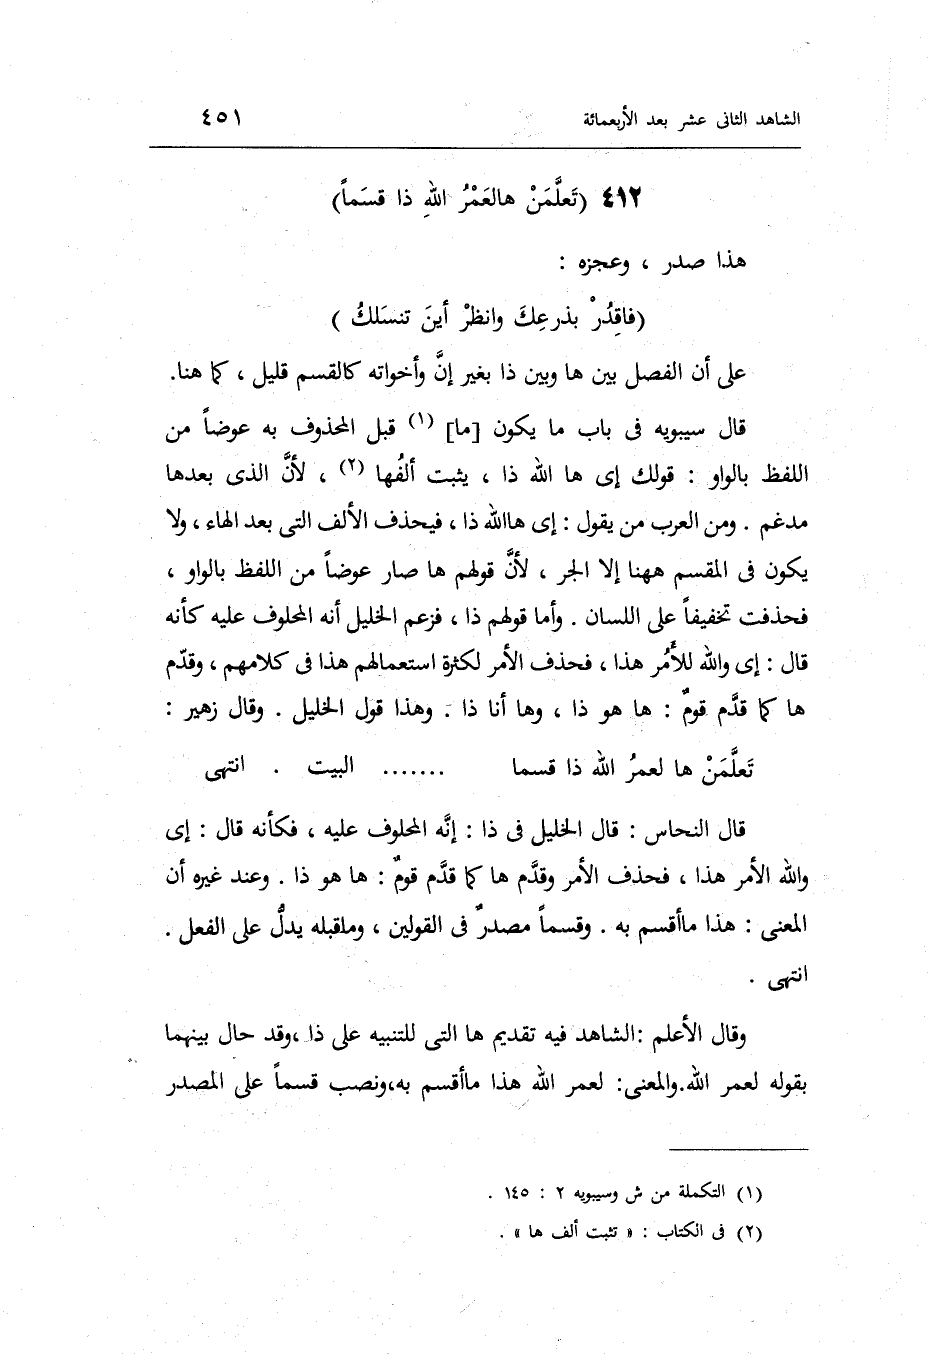 الشاهد الثانى عشر بعد الأربعمائة ٤٥١
٤١٢ (تَعلَّمَنْ هالعَمْرُ اللهِ ذا قسَماً)
هذا صدر ، وعجزه :
(فاقِدُرْ بذرعِكَ وانظرْ أينَ تنسَلكُ )
على أن الفصل بين ها وبين ذا بغير إنَّ وأخواته كالقسم قليل ، كما هنا.
قال سيبويه فى باب ما يكون [ما] (١) قبل المحذوف به عوضاً من
اللفظ بالواو : قولك إى ها الله ذا ، يثبت ألفُها (٢) ، لأنَّ الذى بعدها
مدغم . ومن العرب من يقول : إى هاالله ذا ، فيحذف الألف التى بعد الهاء ، ولا
يكون فى المقسم ههنا إلا الجر ، لأنَّ قولهم ها صار عوضاً من اللفظ بالواو ،
فحذفت تخفيفاً على اللسان . وأما قولهم ذا ، فزعم الخليل أنه المحلوف عليه كأنه
قال : إى والله للأَمُر هذا ، فحذف الأمر لكثرة استعمالهم هذا فى كلامهم ، وقدّم
ها كما قدَّم قومٌ : ها هو ذا ، وها أنا ذا . وهذا قول الخليل . وقال زهير :
تَعلَّمَنْ ها لعمرُ الله ذا قسما ....... البيت . انتهى
قال النحاس : قال الخليل فى ذا : إنَّه المحلوف عليه ، فكأنه قال : إى
والله الأمر هذا ، فحذف الأمر وقدَّم ها كما قدَّم قومٌ : ها هو ذا . وعند غيره أن
المعنى : هذا ماأقسم به . وقسماً مصدرٌ فى القولين ، وماقبله يدلُّ على الفعل .
انتهى .
وقال الأعلم :الشاهد فيه تقديم ها التى للتنبيه على ذا ،وقد حال بينهما
بقوله لعمر الله.والمعنى: لعمر الله هذا ماأقسم به،ونصب قسماً على المصدر
(١) التكملة من ش وسيبويه ٢ : ١٤٥ .
(٢) فى الكتاب : « تثبت ألف ها » .